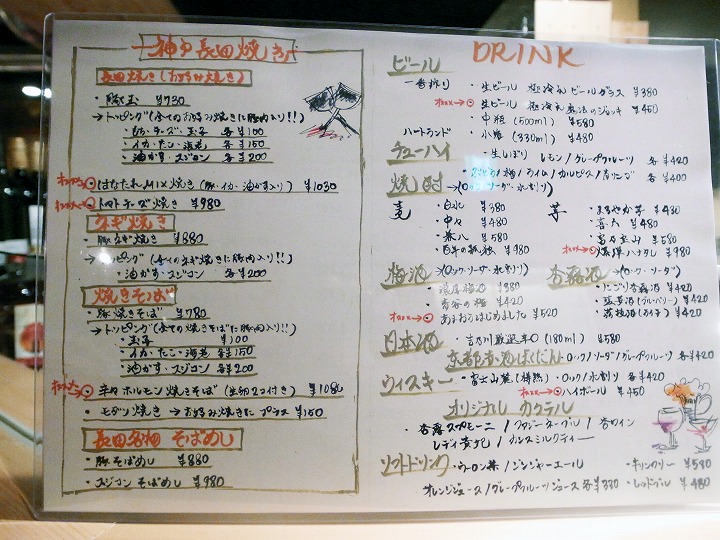 神戸長田焼き
長田焼き(お好み焼き)
・豚玉 ¥730
→トッピング(全てのお好み焼きに豚肉入り!!)
・チーズ・玉子 各¥100
・イカ・たこ・海老 各¥150
・油かす・スジコン 各¥200
はなたれMIX焼き(豚・イカ・油かす入り) ¥1030
トマトチーズ焼き ¥980
ネギ焼き
・豚ネギ焼き ¥880
→トッピング(全てのネギ焼きに豚肉入り!!)
・油かす・スジコン 各¥200
焼きそば
・豚焼きそば ¥780
→トッピング(全ての焼きそばに豚肉入り!!)
・玉子 ¥100
・イカ・たこ・海老 各¥150
・油かす・スジコン 各¥200
辛々ホルモン焼きそば(生卵2コ付き) ¥1080
・モダン焼き →お好み焼きに プラス ¥150
長田名物 そばめし
・豚そばめし ¥880
・スジコンそばめし ¥980
DRINK
ビール
一番搾り ・生ビール 極冷えビールグラス ¥380
・生ビール 極冷え魔法のジョッキ ¥450
・中瓶(500ml) ¥580
ハートランド ・小瓶(330ml) ¥480
チューハイ
・生しぼり レモン/グレープフルーツ 各¥420
梅/ライム/カルピス/青リンゴ 各¥400
焼酎→(ロック・ソーダ・水割り)
麦 ・白水 ¥380
・中々 ¥480
・兼八 ¥580
・百年の孤独 ¥980
芋 ・まろやか芋 ¥430
・喜六 ¥480
・富乃宝山 ¥580
・爆弾ハナタレ ¥980
梅酒→(ロック・ソーダ・水割り)
¥380
¥420
・あらごしはじめました ¥520
杏露酒→(ロック・ソーダ)
・にごり杏露酒 ¥420
・藍苺酒(ブルーベリー) ¥420
・茘枝酒(ライチ) ¥420
日本酒 ・吉乃川 (180ml) ¥580
京都赤酒ばくだん ・ロック/ソーダ/グレープフルーツ 各¥420
ウィスキー ・富士山麓(樽熟)・ロック/水割り 各¥420
・ハイボール ¥450
オリジナル カクテル
・杏露スプモーニ/ファジーネーブル/杏ワイン
レディ/カシスミルクティー
ソフトドリンク ・ウーロン茶/ジンジャーエール
オレンジジュース/グレープフルーツジュース 各¥330
・キリンフリー ¥530
・レッドブル ¥480